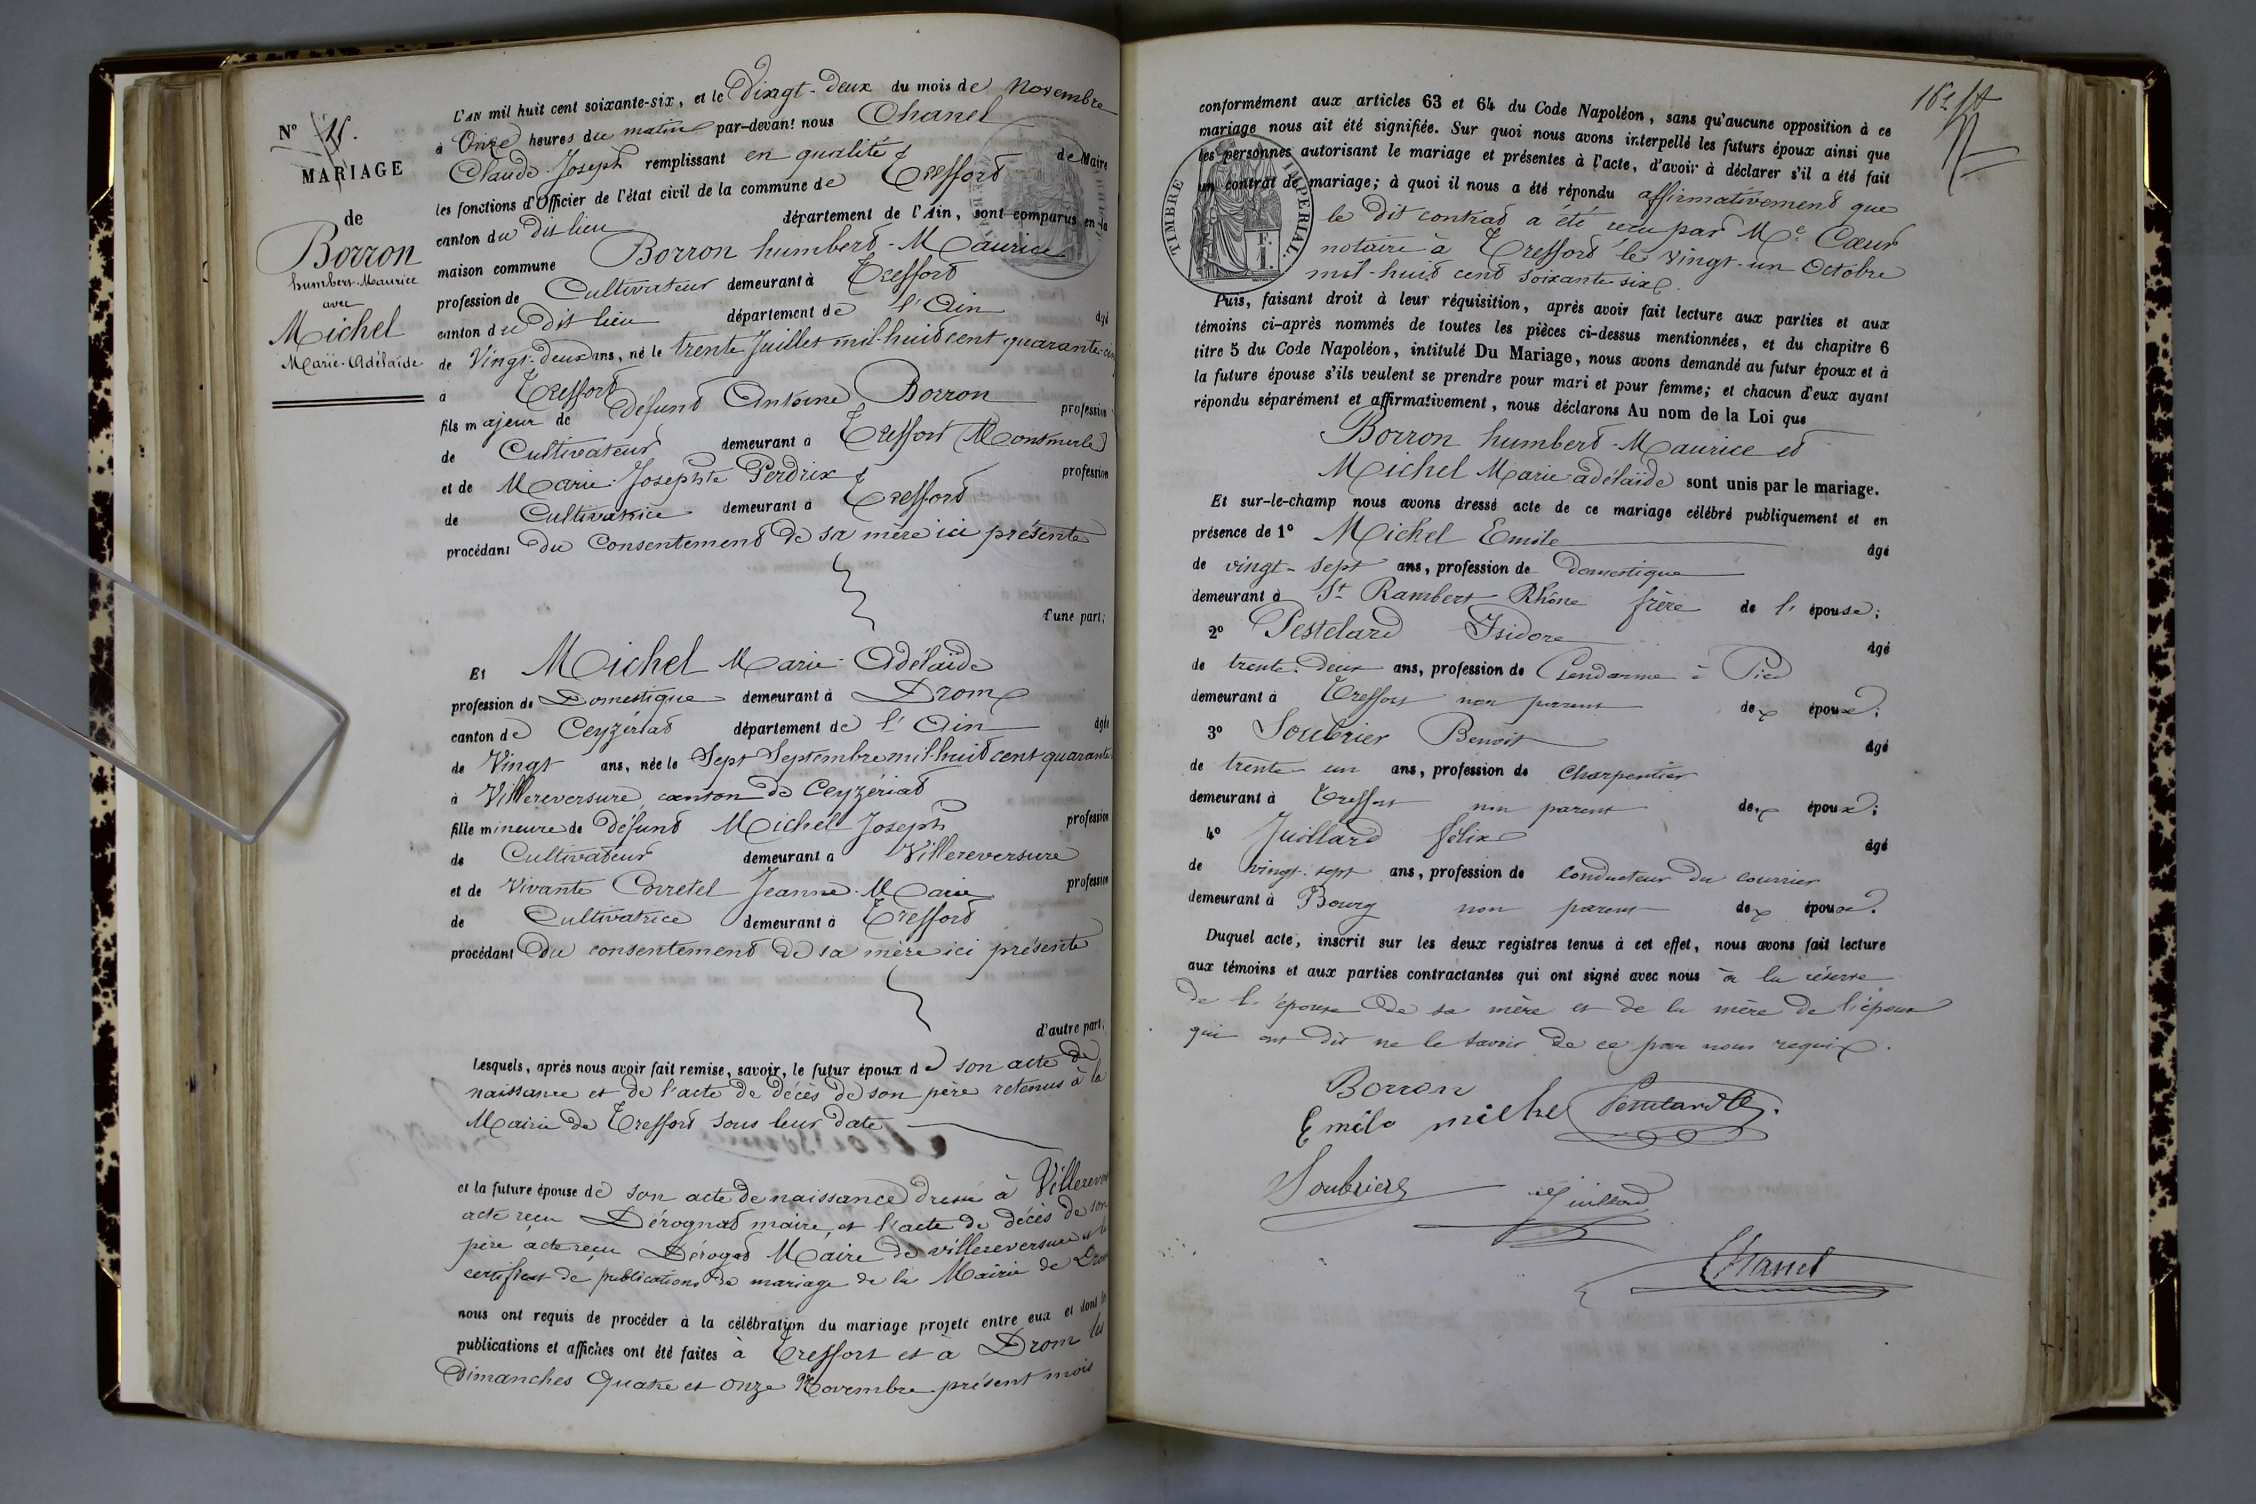 L'AN mil huit cent soixante-six, et le Vingt-deux du mois de Novembre
à Onze heures du matin par-devant nous Chanel
Claude-Joseph remplissant en qualité de Maire
les fonctions d'Officier de l'état civil de la commune de Treffort
canton du dit lieu département de l'Ain, sont comparus en la
maison commune Borron humbert-Maurice
profession de Cultivateur demeurant à Treffort
canton du dit lieu département de l'Ain âgé
de Vingt-deux ans, né le trente Juillet mil-huit cent quarante-
à Treffort
fils majeur de défunt Antoine Borron profession
de Cultivateur demeurant à Treffort (Montmerle)
et de Marie-Josephte Perdrix profession
de Cultivatrice demeurant à Treffort
procédant du Consentement de sa mère ici présente
d'une part;
Nº 15.
MARIAGE
de
Borron
humbert-Maurice
avec
Michel
Marie-Adélaïde
Et Michel Marie-Adélaïde
profession de Domestique demeurant à Drom
canton de Ceyzériat département de l'Ain âgée
de Vingt ans, née le Sept Septembre mil-huit cent quarante
à Villereversure canton de Ceyzériat
fille mineure de défunt Michel Joseph profession
de Cultivateur demeurant à Villereversure
et de Vivante Corretel Jeanne-Marie profession
de Cultivatrice demeurant à Treffort
procédant du consentement de sa mère ici présente
d'autre part,
Lesquels, après nous avoir fait remise, savoir, le futur époux de son acte de
naissance et de l'acte de décès de son père retenus à la
Mairie de Treffort sous leur date
et la future épouse de son acte de naissance dressé à Villerever
acte reçu Dérognat maire, et l'acte de décès de son
père acte reçu Dérogat Maire de villereversure et le
certificat de publications de mariage de la Mairie de Drom
nous ont requis de procéder à la célébration du mariage projeté entre eux et dont les
publications et affiches ont été faites à Treffort et à Drom les
Dimanches Quatre et onze Novembre présent mois
conformément aux articles 63 et 64 du Code Napoléon, sans qu'aucune opposition à ce
mariage nous ait été signifiée. Sur quoi nous avons interpellé les futurs époux ainsi que
les personnes autorisant le mariage et présentes à l'acte, d'avoir à déclarer s'il a été fait
un contrat de mariage; à quoi il nous a été répondu affirmativement que
le dit contrat a été reçu par Me. Cœur
notaire à Treffort le vingt-un Octobre
mil-huit cent soixante six.
TIMBRE IMPÉRIAL.
F.
1.
Puis, faisant droit à leur réquisition, après avoir fait lecture aux parties et aux
témoins ci-après nommés de toutes les pièces ci-dessus mentionnées, et du chapitre 6
titre 5 du Code Napoléon, intitulé Du Mariage, nous avons demandé au futur époux et à
la future épouse s'ils veulent se prendre pour mari et pour femme; et chacun d'eux ayant
répondu séparément et affirmativement, nous déclarons Au nom de la Loi que
Borron humbert-Maurice et
Michel Marie-adélaïde sont unis par le mariage.
Et sur-le-champ nous avons dressé acte de ce mariage célébré publiquement et en
présence de 1º Michel Emile âgé
de vingt-sept ans, profession de domestique
demeurant à St Rambert Rhône frère de l'épouse;
2º Pestelard Isidore âgé
de trente-deux ans, profession de Gendarme à Pied
demeurant à Treffort non parent de époux;
3º Soubrier Benoît âgé
de trente-un ans, profession de Charpentier
demeurant à Treffort non parent de époux;
4º Juillard félix âgé
de vingt-sept ans, profession de Conducteur du courrier
demeurant à Bourg non parent de époux.
Duquel acte, inscrit sur les deux registres tenus à cet effet, nous avons fait lecture
aux témoins et aux parties contractantes qui ont signé avec nous à la réserve
de l'épouse de sa mère et de la mère de l'époux
qui ont dit ne le savoir de ce par nous requis.
Borron
Emile michel
Soubrier
Juillard
Chanel